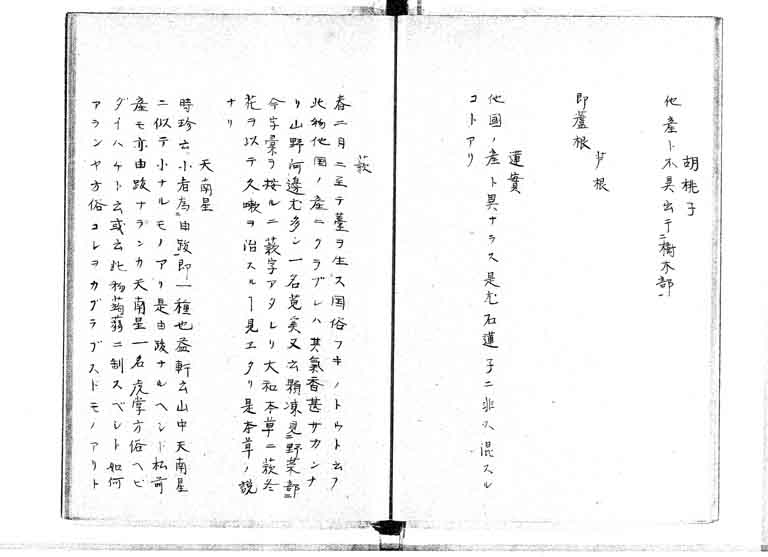 胡桃子
他産ト不異出于樹木部
芦根
即蘆根
蓮實
他國ノ産ト異ナラス是尤石蓮子ニ非ス混スル
コトアリ
蕗
春二月ニ至テ薹ヲ生ス国俗フキノトウト云フ
此物他国ノ産ニクラブレハ其氣香甚サカンナ
リ山野河邊尤多シ一名菟奚又云顆凍見野菜部
今字彙ヲ按ルニ蕗字アタレリ大和本草ニ蕗冬
花ヲ以テ久嗽ヲ治スルヿ見エタリ是本草ノ説
ナリ
天南星
時珍云小者為由跋即一種也益軒云山中天南星
ニ似テ小ナルモノアリ是由跋ナルヘシト松前
産モ亦由跋ナランカ天南星一名虎掌方俗ヘビ
ダイハチト云或云此物蒟蒻ニ制スベシト如何
アランヤ方俗コレヲカグラブスドモノアリト